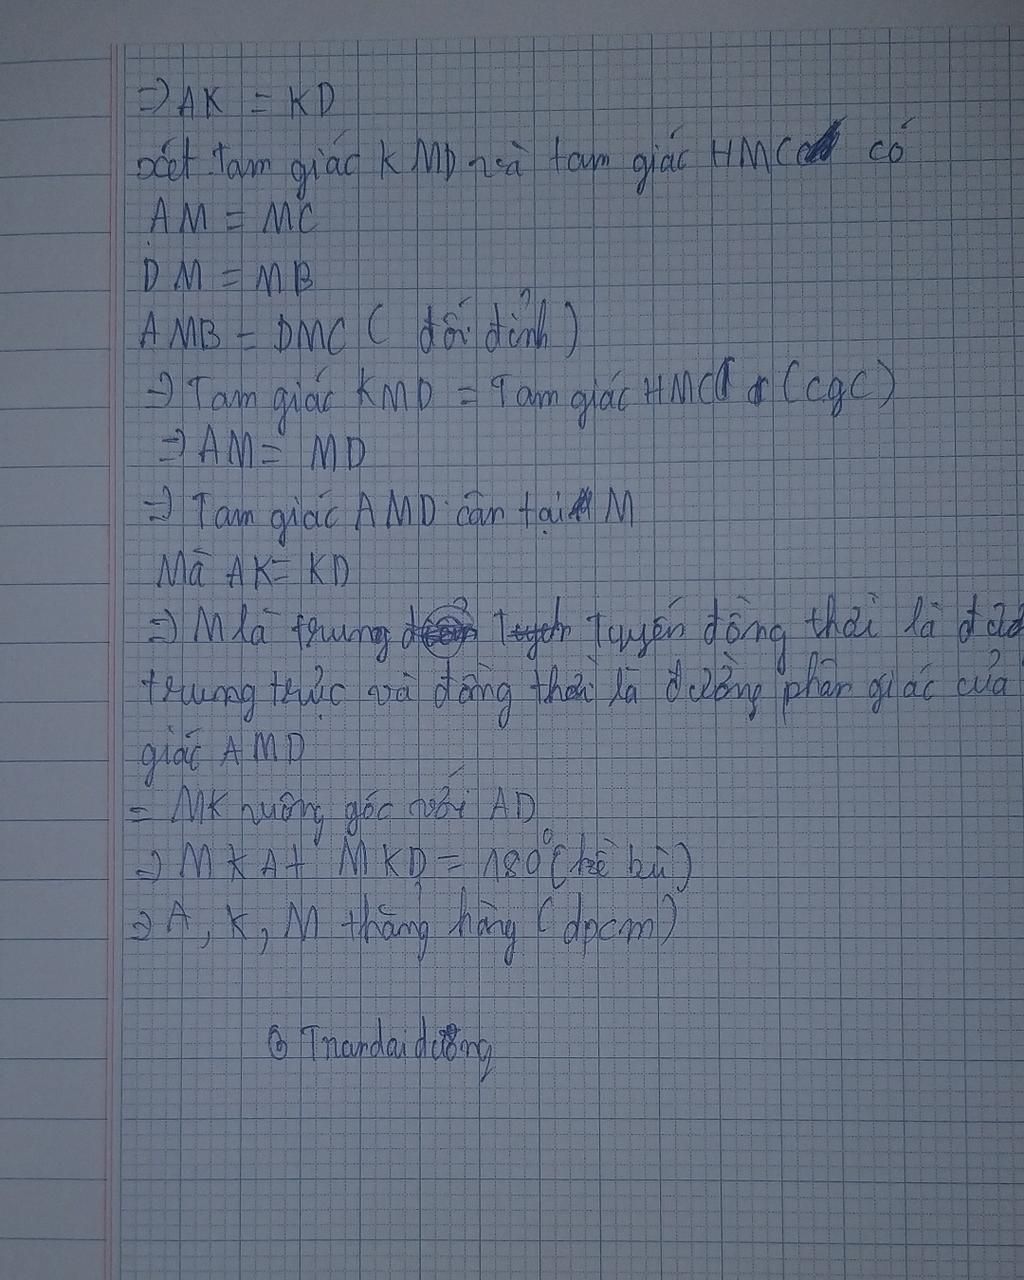 ⇒ AK = KD
xét Tam giác KMD và tam giác HMC có
AM = MC
DM = MB
AMB = DMC ( đối đỉnh )
⇒ Tam giác KMD = Tam giác HMC (cgc)
⇒ AM = MD
⇒ Tam giác AMD cân tại M
Mà AK = KD
⇒ M là trung Tuyến đồng thời là
trung trực và đồng thời là đường phân giác của
giác AMD
= MK vuông góc với AD
⇒ MKA + MKD = 180° (kề bù)
⇒ A, K, M thẳng hàng (dpcm)